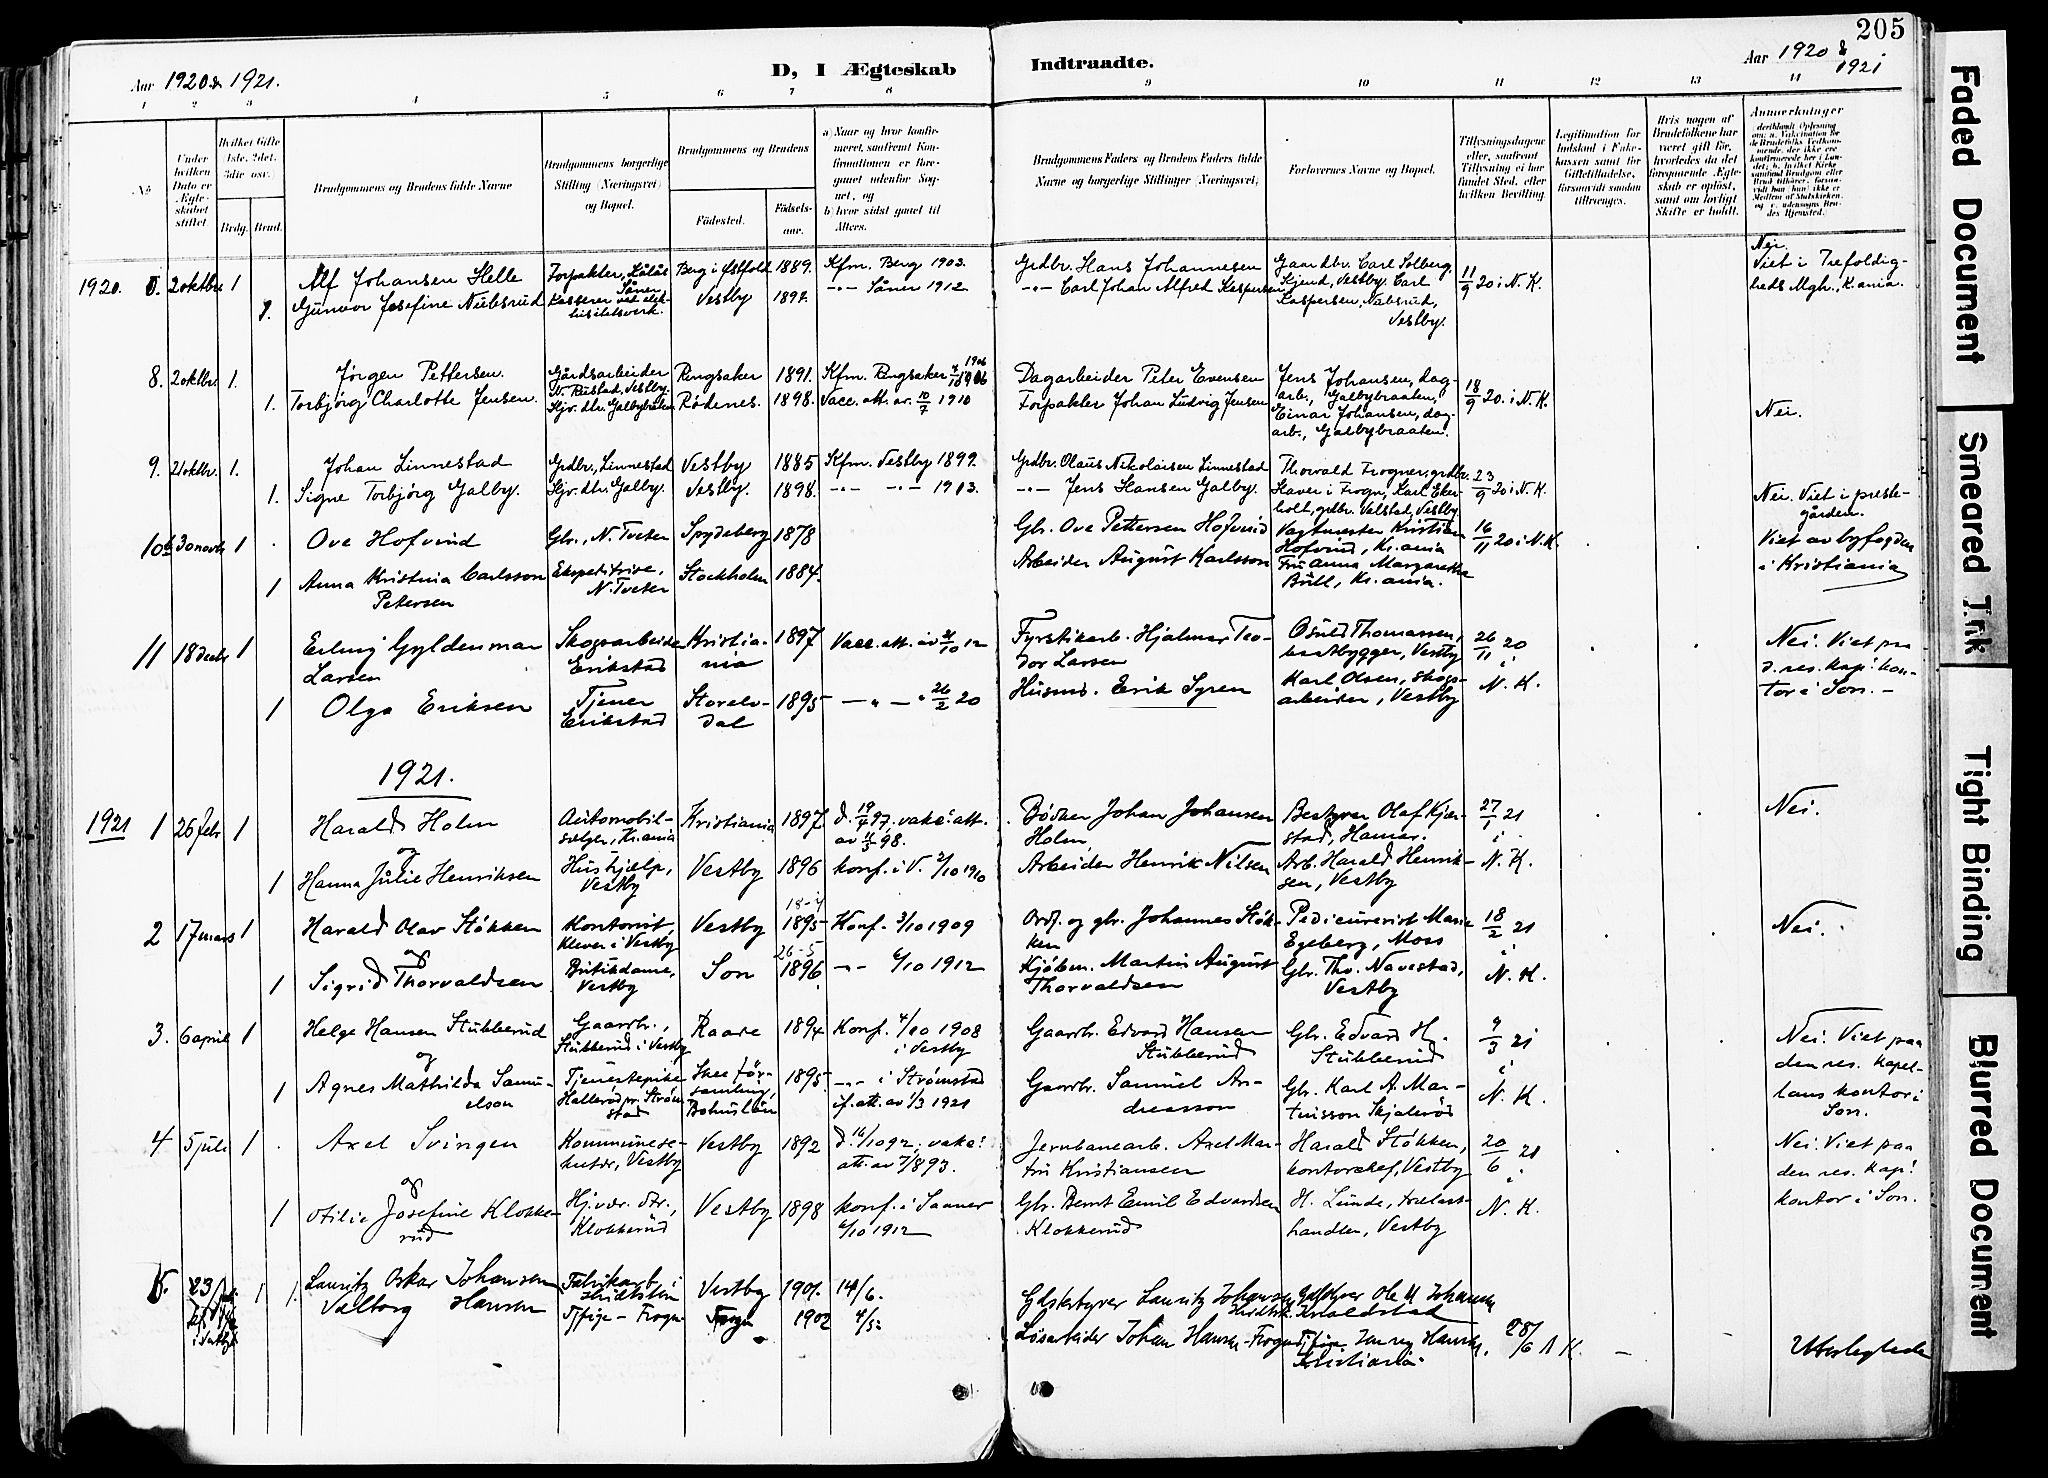 205
Aar 1920 & 1921.
D, I Ægteskab
Indtraadte.
Aar 1920 &
1921
1 2 3 4 5 6 7 8 9 10 11 12 13 14
No
Under hvilken Dato er Ægteskabet stiftet.
Hvilket Gifte 1ste, 2det, 3die osv.)
Brdg. Brud.
Brudgommens og Brudens fulde Navne
Brudgommens borgerlige Stilling (Næringsvei) og Bopæl.
Brudgommens og Brudens
Fødested.
Fødselsaar.
a) Naar og hvor konfirmeret, samt om Konfirmationen er foregaaet udenfor Sognet, og
b) hvor sidst gaaet til Alters.
Brudgommens Faders og Brudens Faders fulde Navne og borgerlige Stillinger (Næringsvei)
Forlovernes Navne og Bopæl.
Tillysningsdagene eller, saafremt Tillysning ei har fundet Sted, efter hvilken Bevilling.
Legitimation for Indskud i Enkekassen samt for Giftetilladelse, forsaavidt saadan tiltrænges.
Hvis nogen af Brudefolkene har været gift før, hvorledes da det foregaaende Ægteskab er opløst, samt om lovligt Skifte er holdt.
Anmerkninger
1920. 2 oktbr 1 Alf Johansen Helle Forpakter, Berg i Østfold 1889. Kfm. Berg 1903. Grdbr. Hans Johannesen Gaardbr. Carl Solberg, 11/9 20 i N. K. Nei. Viet i Trefoldig-
1. Gunvor Josefine Nubsrud Kasserer ved elek- Vestby 189 -"- Såner 1912 -"- Carl Johan Alfred Kaspersen Vestby. Carl Kaspersen, Nubsrud, Vestby. heds Mgh., K.ania.
8. 2 oktbr. 1. Jørgen Pettersen. Gårdsarbeider N. Rustad, Vestby. Ringsaker 1891. Kfm. Ringsaker 1906 Dagarbeider Peter Evensen Jens Johansen, dagarb., Galbybraaten, 18/9 20. i N. K.
1. Torbjørg Charlotte Jensen. Hjv. dtr. Galbybråten Rødenes. 1898. Vacc. att. av 10/7 1910 Forpakter Johan Ludvig Jensen Einar Johansen, dagarb., Galbybraaten. Nei.
9. 21 oktbr. 1. Johan Linnestad Grdbr., Linnestad Vestby 1885 Kfm. Vestby 1899. Grdbr. Olaus Nikolaisen Linnestad Thorvald Frogner, grdbr. 23/9 20 i N. K.
1. Signe Torbjørg Galby. Hjv. dtr. Galby. Vestby. 1898. -"- -"- 1913. -"- Jens Hansen Galby. Haver i Frogn, Karl Ekeholt, grdbr. Vestby Nei. Viet i prestegården.
10 30 novbr 1 Ove Hofvind Gbr., N. Tveter Spydeberg 1878 Gbr. Ove Pettersen Hofvind Vagtmester Kristian Hofvind, Kr.ania 16/11 20 i N. K. Viet av byfogden
1 Anna Kristina Carlsson Petersen Ekspeditrice, N. Tveter Stockholm 1884. Arbeider August Karlsson Fru Anna Margarethe Bull, Kr.ania. i Kristiania
11 18 decbr 1 Erling Gyldenmar Larsen Skogsarbeider Erikstad Kristiania 1897 Vacc. att. av 21/10 12 Fyrstikarb. Hjalmar Teodor Larsen Osuld Thomassen, Vestby 26/11 20 i Nei. Viet paa d. res. kap! kontor i Son. -
1 Olga Eriksen Tjener Erikstad Storelvdal 1895 -"- 26/2 20 Husmd. Erik Syren Karl Olsen, skogsarbeider, Vestby N. K.
1921.
1921 1 26 febr 1 Harald Holm Automobilselger, Kr.ania Kristiania 1897 d. 19/4 97. vakc! att. av 98. Bødker Johan Johansen Holm. Bestyrer Olaf Kjærstad, Hamar. 27/1 21 i Nei.
og
1 Hanna Julie Henriksen Hushjælp, Vestby Vestby 1896 konf. i V. 2/10 1910 Arbeider Henrik Nilsen Arb. Harald Henriksen, Vestby N. K.
2 17 mars 1 Harald Olav Støkken Kontorist, Klever i Vestby Vestby 18-4 1895 Konf. 3/10 1909 Ordf. og gbr. Johannes Støkken Pedicurerist Marie Egeberg, Moss 18/2 21 i Nei.
og
1 Sigrid Thorvaldsen Butikdame, Vestby Son 26-5 1896. -"- 6/10 1912 Kjøbm. Martin August Thorvaldsen Gbr. Thv. Navestad, Vestby N. K.
3. 6 april 1 Helge Hansen Stubberud Gaardbr., Stubberud i Vestby Raade 1894 Konf. 4/10 1908 i Vestby Gaardbr. Edvard Hansen Stubberud Gbr. Edvard H. Stubberud 9/3 21 i Nei. Viet paa den res. kapellans kontor i Son.
og
1 Agnes Mathilda Samuelson Tjenestepike Hallerød pr. Strømstad Skee församling, Bohuslän 1895 -"- i Strømstad if. att. av 1/3 1921 Gaardbr. Samuel Andreasson Gbr. Karl A. Martinsson Skjalerød N. K.
4 5 juli 1 Axel Svingen Kommunese-, Vestby Vestby 1892 d. 16/10 92. vakc! att. av 7/8 93. Jernbanearb. Axel Martin Kristiansen Harald Støkken, kontorchef, Vestby 20/6 21 i Nei. Viet paa den res. kap! kontor i Son.
og
1 Otilie Josefine Klokkerud Hj.vær. dtr., Klokkerud Vestby 1898 konf. i Saaner 6/10 1912 Gbr. Bernt Emil Edvardsen Klokkerud H. Lunde, trælasthandler, Vestby N. K.
5. 23/ 1 1. Lauritz Oskar Johansen Fabrikarb. i Vestby 1901. 14/6. Lauritz Johansen Ole M Johansen
Valborg Hansen Tjpige - Frogn Frogn 1902 4/5. Løsarbeider Johan Hansen - Frogn Henry Hansen, Kristiania 28/6 N K. - Ubeslegtede
Faded Document
Smeared Ink
Tight Binding
Blurred Document